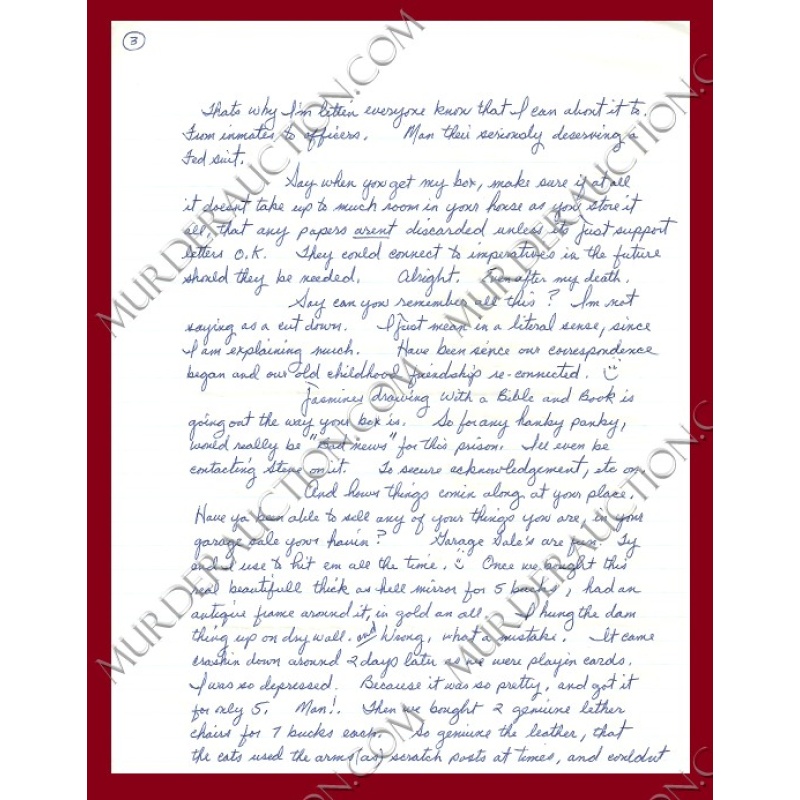 3
Thats why I'm lettin everyone know that I can about it to.
From inmates to officers. Man their seriously deserving a
Fed suit.
Say when you get my box, make sure if at all
it doesnt take up to much room in your house as you store it
all, that any papers arent discarded unless its just support
letters O.K. They could connect to imperatives in the future
should they be needed. Alright. Even after my death.
Say can you remember all this? Im not
saying as a cut down. I just mean in a literal sense, since
I am explaining much. Have been sence our correspondence
began and our old childhood friendship re-connected.
Jasmines drawing with a Bible and Book is
going out the way your box is. So for any hanky panky,
would really be "Bad news" for this prison. Ill even be
contacting Steve on it. To secure acknowledgement, etc on
And hows things comin along at your place.
Have ya been able to sell any of your things you are, in your
garage sale yours havin? Garage Sale's are fun. Ty
and I use to hit em all the time. Once we bought this
real beautifull thick as hell mirror for 5 bucks, had an
antique frame around it, in gold an all. I hung the dam
thing up on dry wall. Wrong, what a mistake. It came
crashin down around 2 days later as we were playin cards.
I was so depressed. Because it was so pretty, and got it
for only 5. Man!. Then we bought 2 genuine lether
chairs for 7 bucks each. So genuine the leather, that
the cats used the arms (as) scratch posts at times, and couldnt
MURDERAUCTION.COM